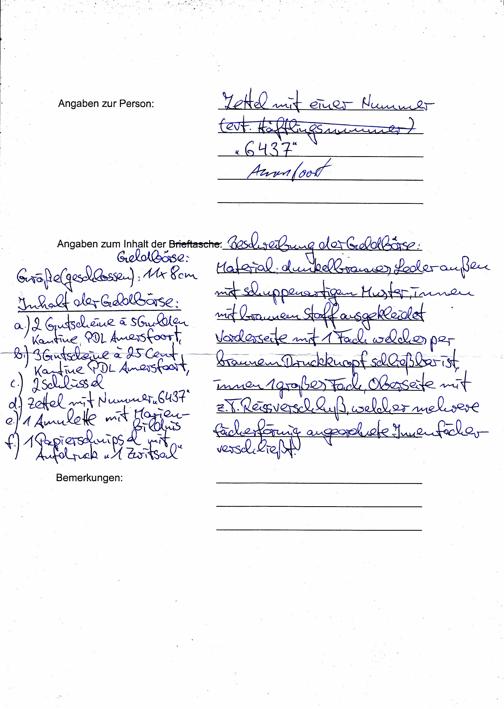 Angaben zur Person:
Zettel mit einer Nummer
(evt. Häftlingsnummer)
"6437"
Amersfoort
Angaben zum Inhalt der Brieftasche:
Geldbörse:
Größe (geschlossen): 11x8cm
Inhalt der Geldbörse:
a.) 2 Gutscheine à 5 Gulden
Kantine, PDL Amersfoort,
b.) 3 Gutscheine à 25 Cent,
Kantine PDL Amersfoort,
c.) 2 Schlüssel
d.) Zettel mit Nummer "6437"
e.) 1 Amulette mit Marien-
bildnis
f.) 1 Papierschnipsel mit
Aufdruck "1 Zwitsal"
Beschreibung der Geldbörse:
Material: dunkelbraunes Leder außen
mit schuppenartigen Muster, innen
mit braunen Stoff ausgekleidet
Vorderseite mit 1 Fach welches per
braunen Druckknopf schließbar ist,
innen 1 großes Fach, Oberseite mit
z.T. Reissverschluß, welcher mehrere
fächerförmig angeordnete Innenfächer
verschließt.
Bemerkungen: